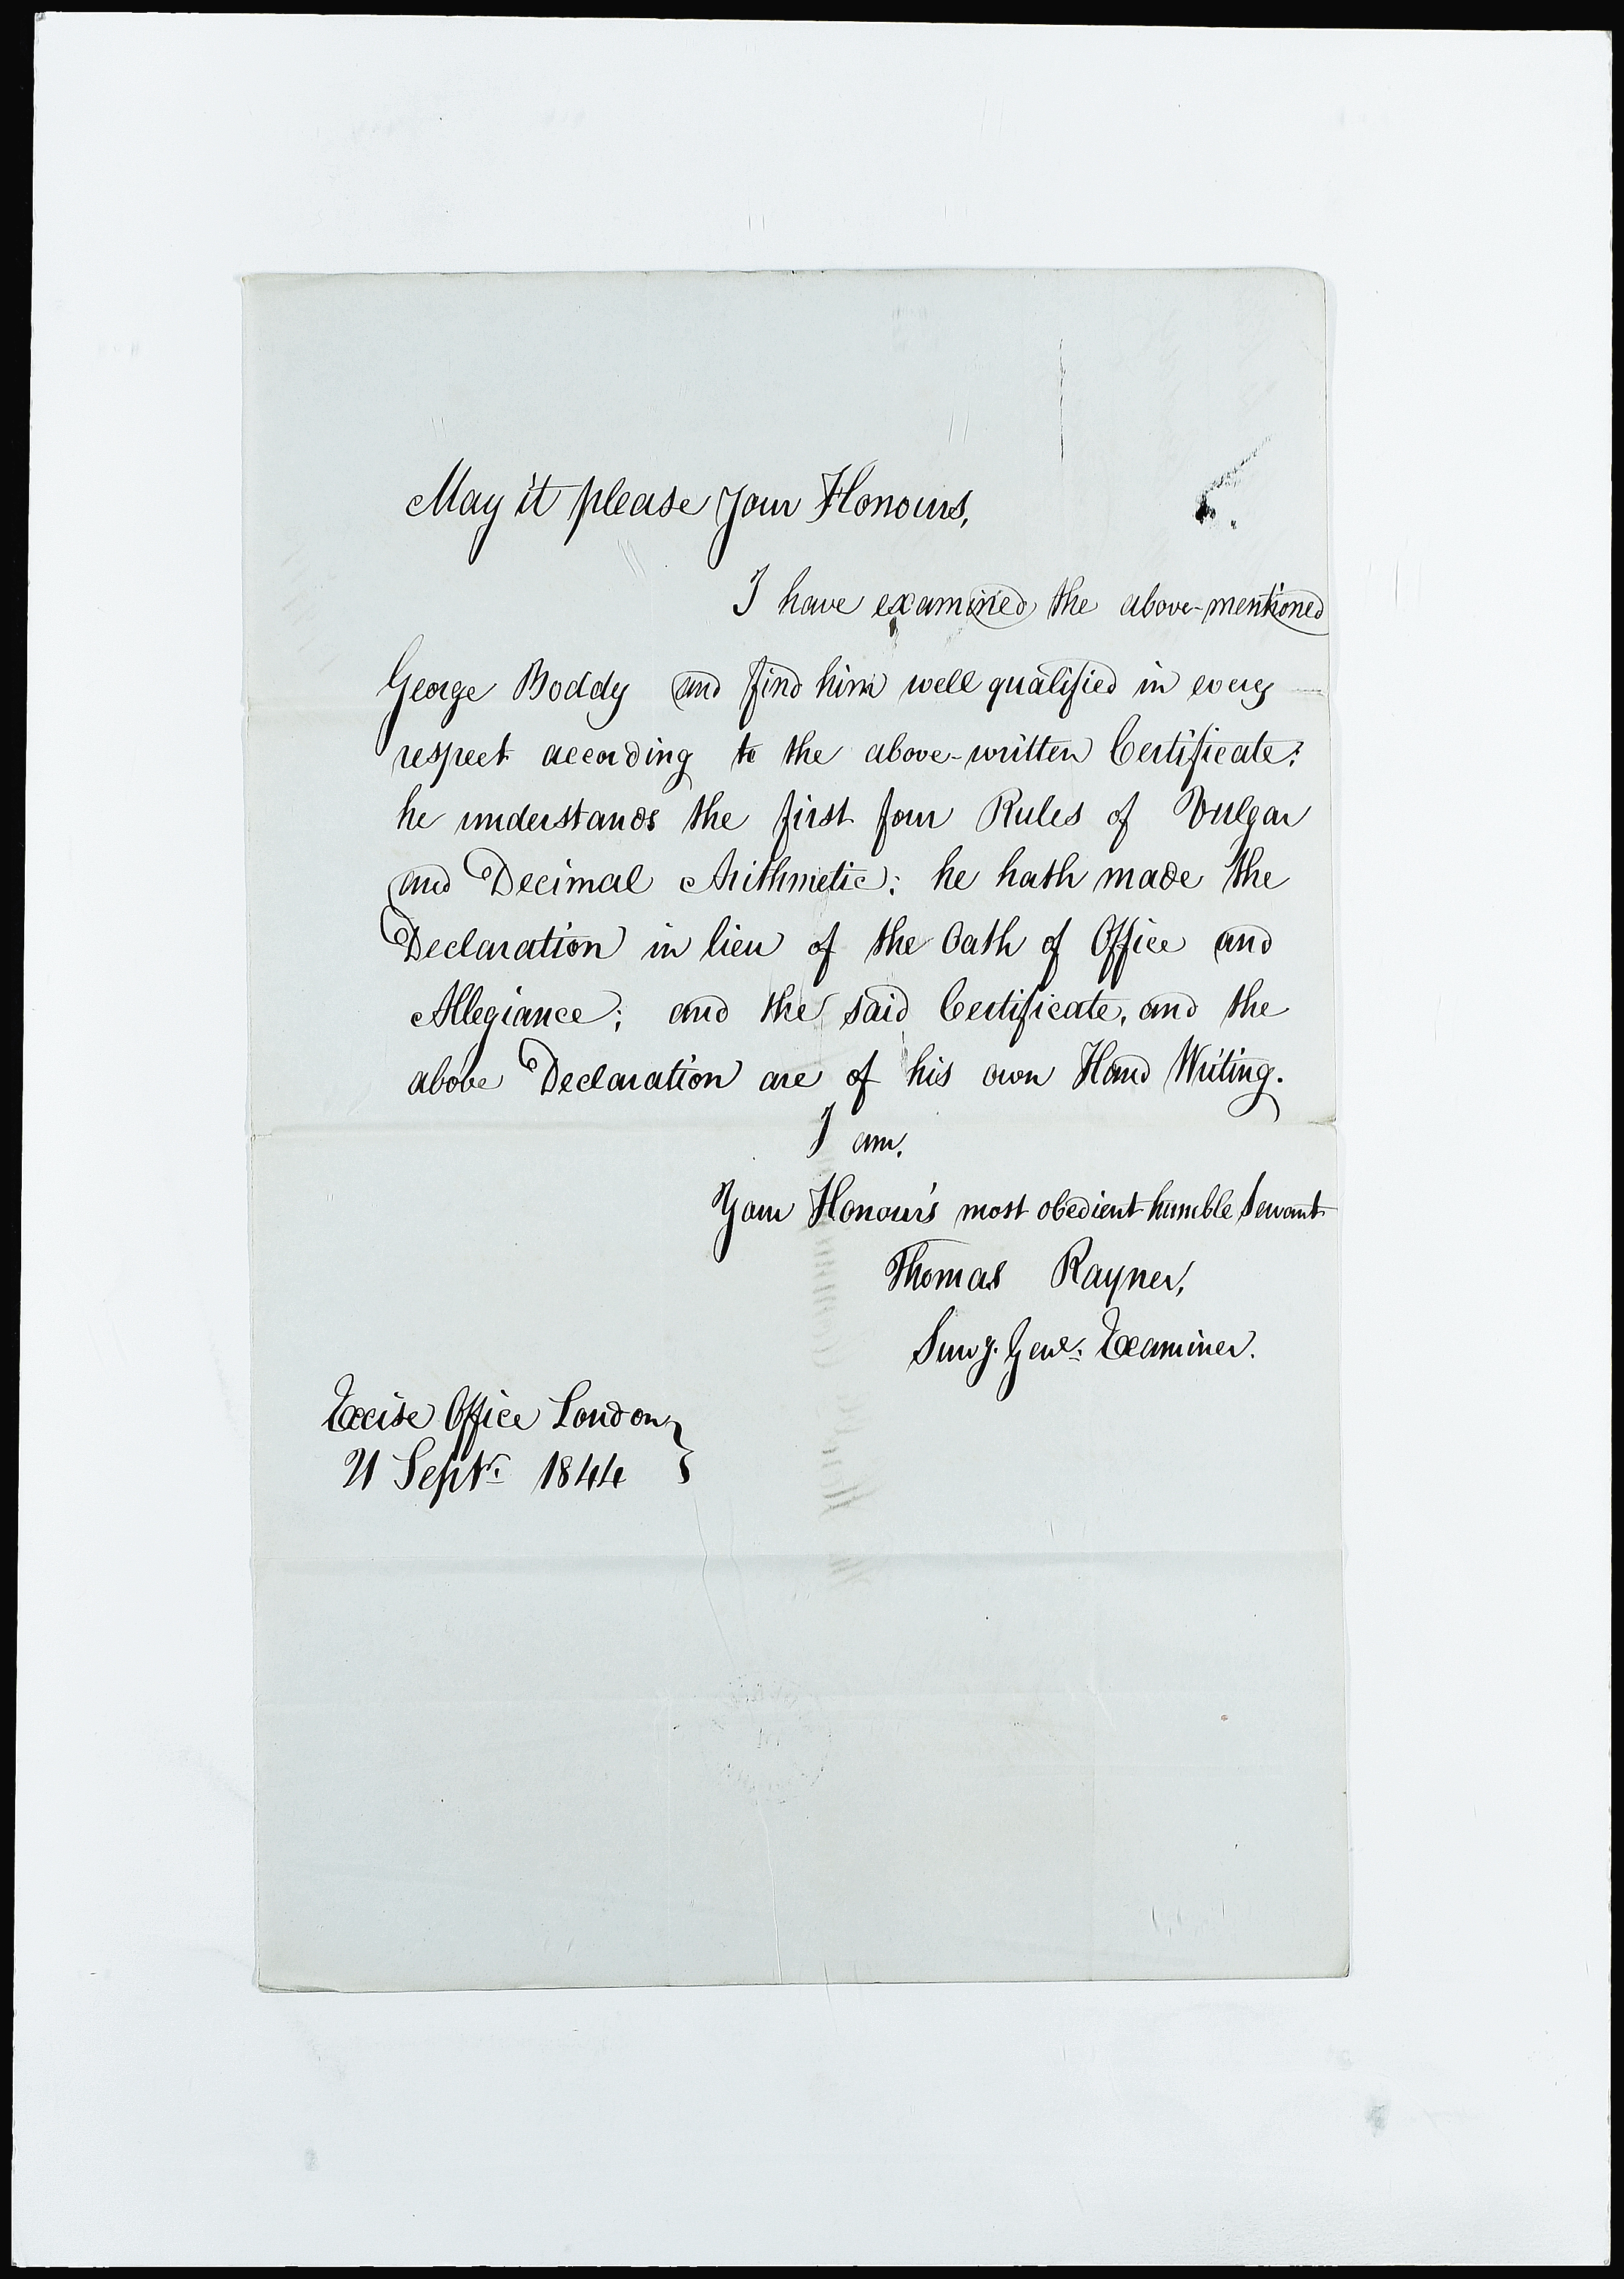 May it please Your Honours,
I have examined the above-mentioned
George Boddy and find him well qualified in every
respect according to the above-written Certificate:
he understands the first four Rules of Vulgar
and Decimal Arithmetic: he hath made the
Declaration in lieu of the Oath of Office and
Allegiance; and the said Certificate, and the
above Declaration are of his own Hand Writing.
I am,
Your Honour's most obedient humble Servant
Thomas Rayner,
Survg. Genl. Examiner.
Excise Office London
21 Septr. 1844